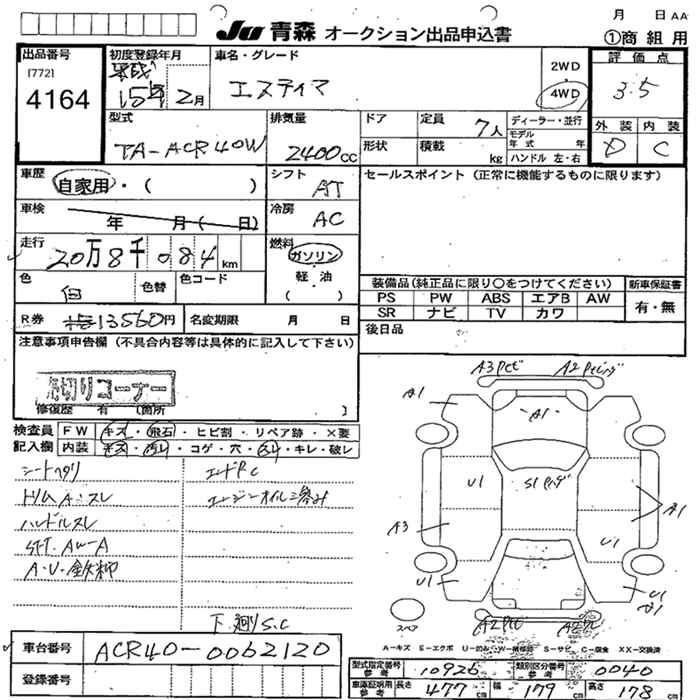 月 日 AA
JU 青森 オークション出品申込書 ①商組用
出品番号
[772]
4164
初度登録年月
平成
15年 2月
車名・グレード
エスティマ
2WD
4WD
評価点
3.5
外装 内装
D C
型式
TA-ACR40W
排気量
2400cc
ドア
定員
7人
ディーラー・並行
モデル
年式 年
形状
積載
kg
ハンドル 左・右
車歴
自家用・( )
シフト
AT
セールスポイント(正常に機能するものに限ります)
車検
年 月( 日)
冷房
AC
走行
20万8千084km
燃料
ガソリン
軽油
( )
色
白
色替
色コード
装備品(純正品に限り○をつけてください)
新車保証書
PS PW ABS エアB AW
SR ナビ TV カワ
有・無
R券
13560円
名変期限 月 日
後日品
注意事項申告欄(不具合内容等は具体的に記入して下さい)
売切りコーナー
修復歴 有 [箇所 ]
検査員
記入欄
FW キズ・飛石・ヒビ割・リペア跡・×要
内装 キズ・汚れ・コゲ・穴・スレ・キレ・破レ
シートヘタリ
エンドRC
ハンドルスレ
下廻りS.C
A1
A1
U1
A3
A1
U1
U1
U1
スペア
A-キズ E-エクボ U-凹み W-補修跡 S-サビ C-腐食 XX-交換済
車台番号
ACR40-0062120
登録番号
型式指定番号
参考
10926
類別区分番号
参考
0040
車庫証明用
参考
長さ
477cm
幅
179cm
高さ
178cm